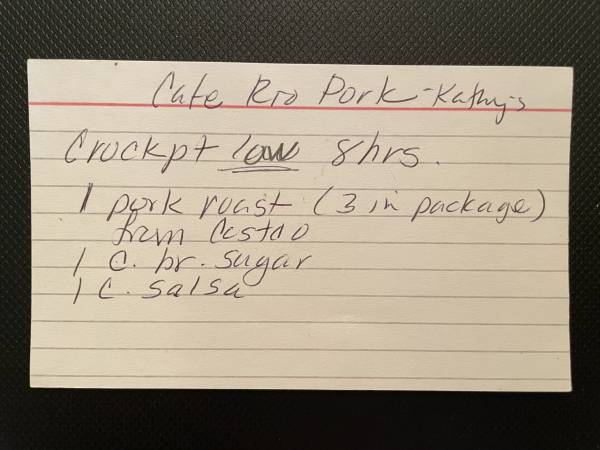 Cafe Rio Pork - Kathy's
Crockpt low 8hrs.
1 pork roast (3 in package)
from Costco
1 c. br. sugar
1 c. salsa